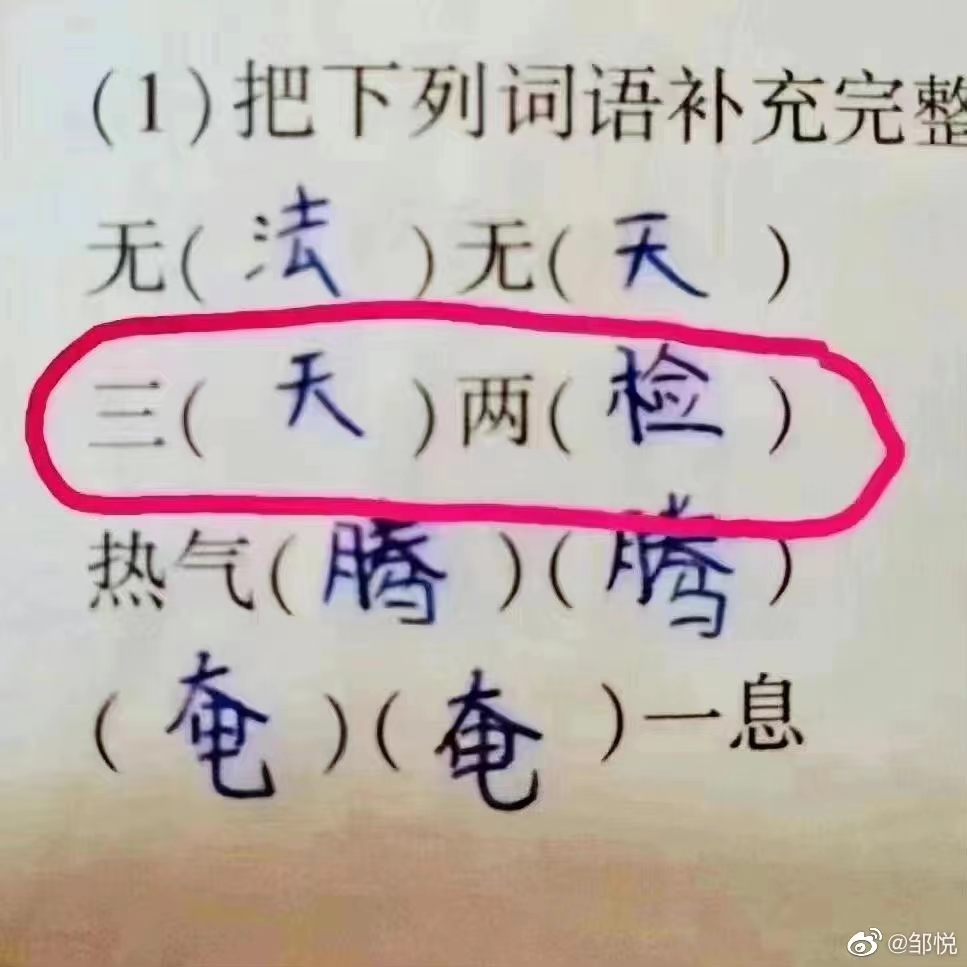 (1)把下列词语补充完整
无(法)无(天)
三(天)两(检)
热气(腾)(腾)
(奄)(奄)一息
@邹悦